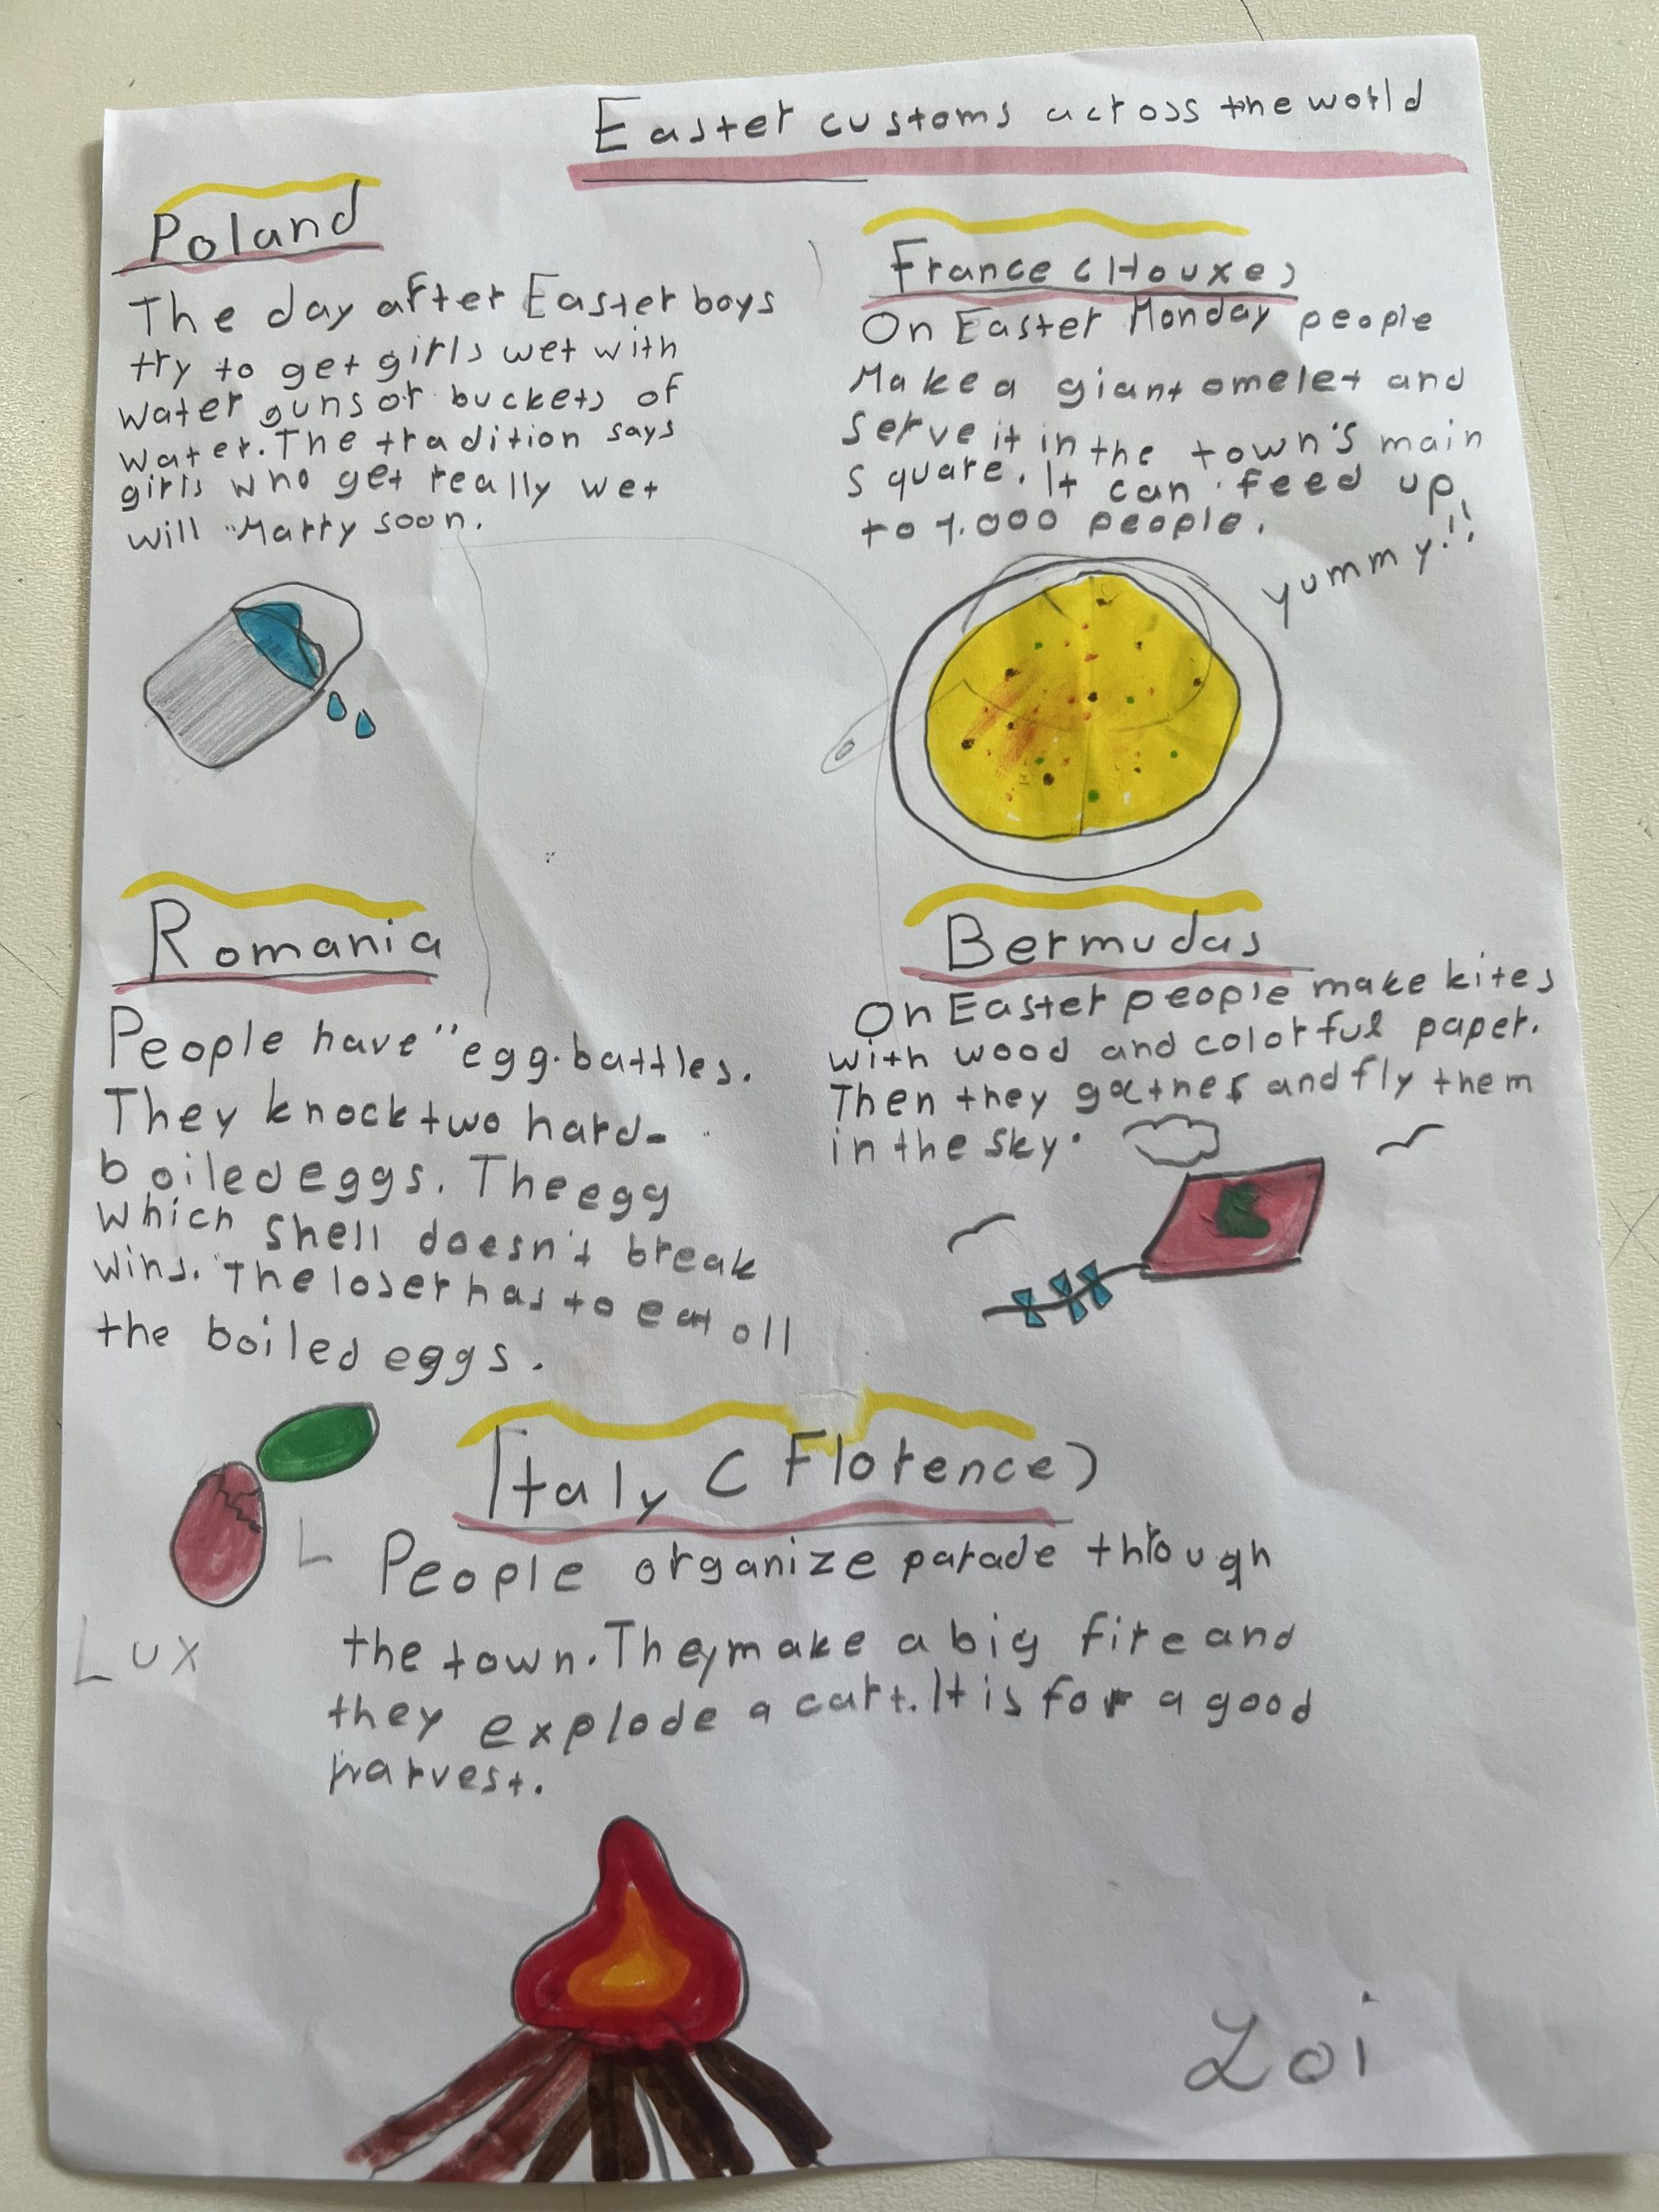 Easter customs across the world
Poland
The day after Easter boys
try to get girls wet with
water guns or buckets of
water. The tradition says
girls who get really wet
will Marry soon.
France (Houxe)
On Easter Monday people
Make a giant omelet and
serve it in the town's main
square. It can feed up
to 1.000 people.
yummy!!
Romania
People have "egg-battles.
They knock two hard-
boiled eggs. The egg
which shell doesn't break
wins. The loser has to eat all
the boiled eggs.
Bermudas
On Easter people make kites
with wood and colorful paper.
Then they gather and fly them
in the sky.
Italy (Florence)
L
People organize parade through
the town. They make a big fire and
they explode a cart. It is for a good
harvest.
Lux
Zoi